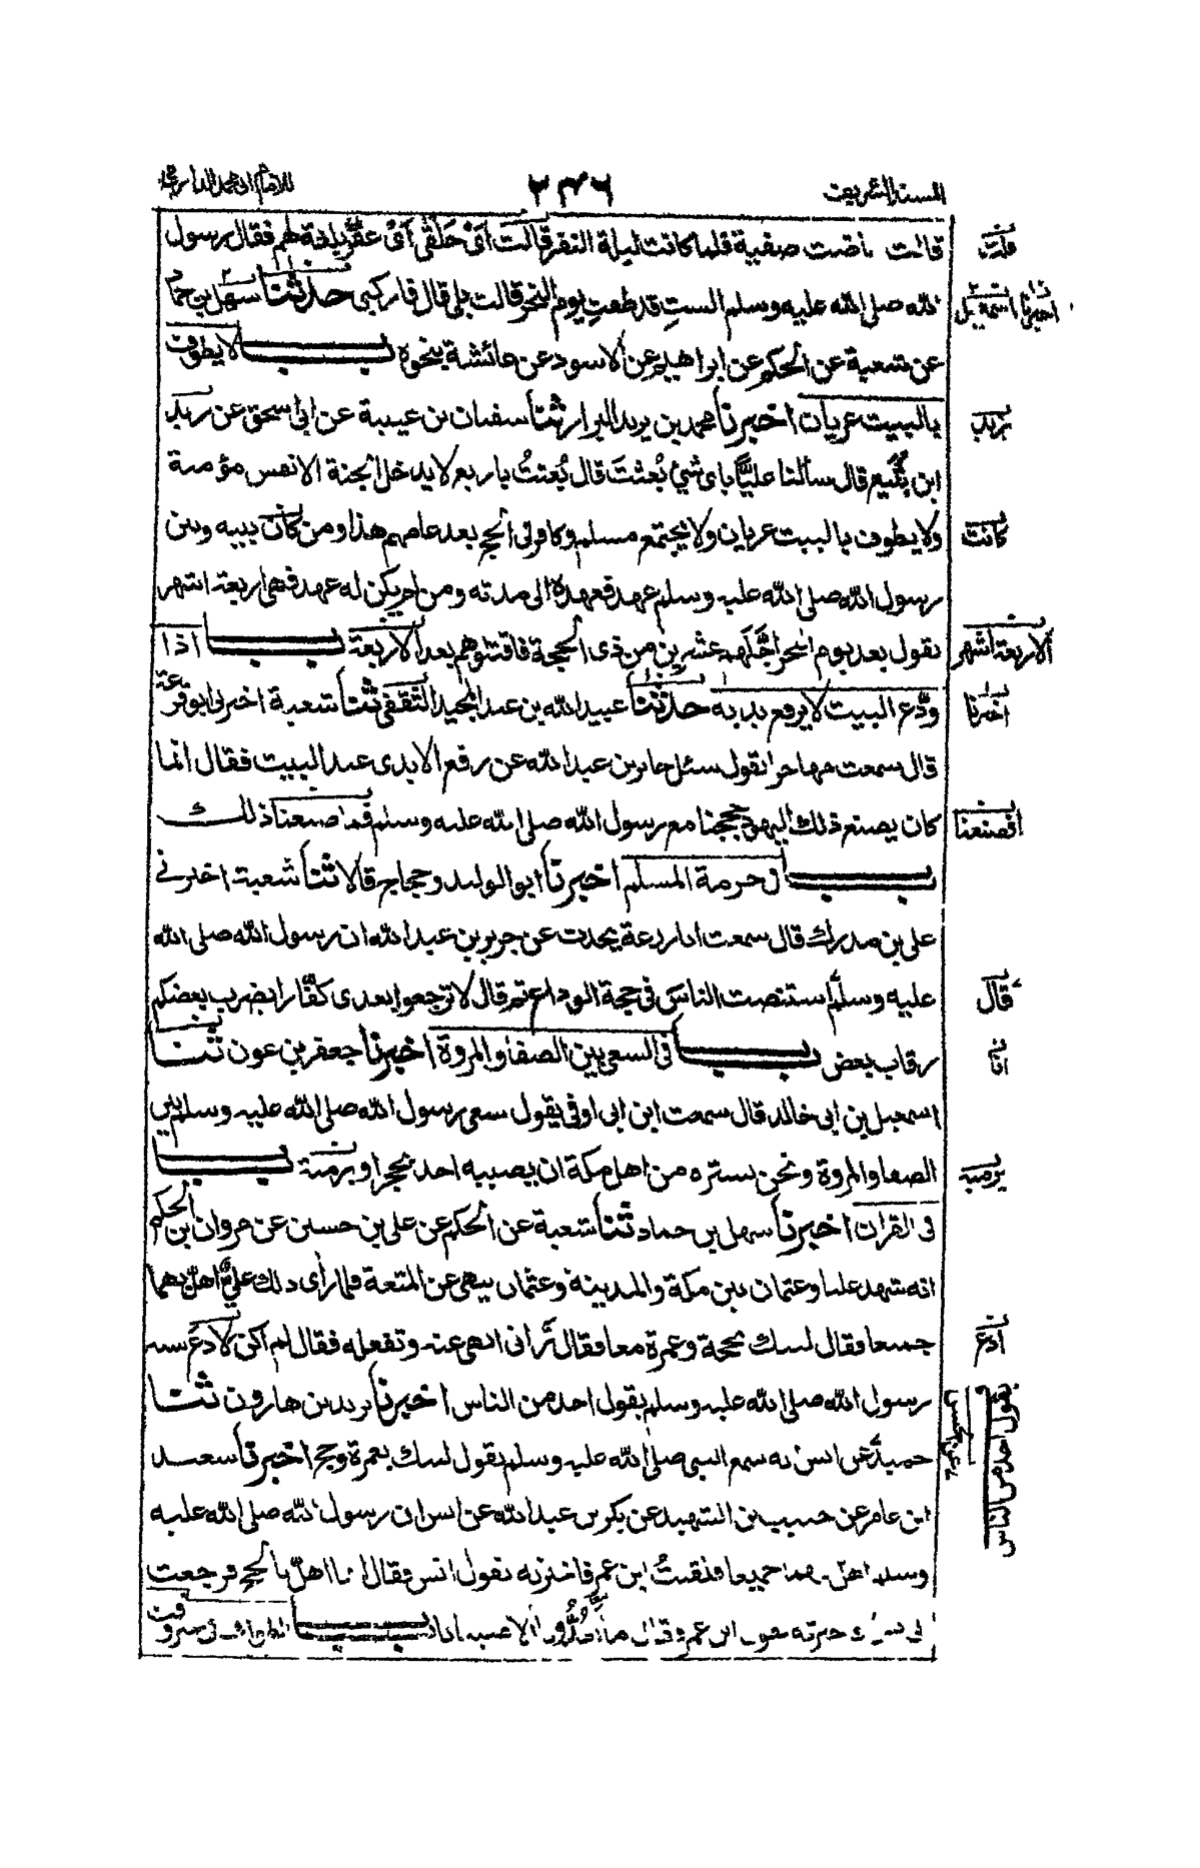 السنة الشريفة ٢٤٦ للامام ابى محمد الدارمى
قالت حاضت صفية فلما كانت ليلة النفر قالت اى حلقى اى عقرى بلغة لهم فقال رسول
الله صلى الله عليه وسلم الستِ قد طفتِ يوم النحر قالت بلى قال فاركبى حدثنا سهل بن حماد
عن شعبة عن الحكم عن ابراهيم عن الاسود عن عائشة بنحوه باب لا يطوف
بالبيت عريان اخبرنا محمد بن يزيد البزار ثنا سفيان بن عيينة عن ابى اسحق عن زيد
ابن يُثَيع قال سألنا عليًّا باى شئ بُعثتَ قال بُعثتُ باربع لا يدخل الجنة الا نفس مؤمنة
ولا يطوف بالبيت عريان ولا يجتمع مسلم وكافر فى الحج بعد عامهم هذا ومن كان بينه وبين
رسول الله صلى الله عليه وسلم عهد فعهده الى مدته ومن لم يكن له عهد فهى اربعة اشهر
يقول بعد يوم النحر اجَلُهم عشرين من ذى الحجة فاقتلوهم بعد الاربعة باب اذا
ودّع البيت لا يرفع يديه حدثنا عبيد الله بن عبد المجيد الثقفى ثنا شعبة اخبرنى ابو قزعة
قال سمعت مهاجرا يقول سئل جابر بن عبد الله عن رفع الايدى عند البيت فقال انما
كان يصنع ذلك اليهود حججنا مع رسول الله صلى الله عليه وسلم فما صنعنا ذلك
باب فى حرمة المسلم اخبرنا ابو الوليد وحجاج قالا ثنا شعبة اخبرنى
على بن مدرك قال سمعت ابا زرعة يحدث عن جرير بن عبد الله ان رسول الله صلى الله
عليه وسلم استنصت الناس فى حجة الوداع ثم قال لا ترجعوا بعدى كفّارا يضرب بعضكم
رقاب بعض باب فى السعى بين الصفا والمروة اخبرنا جعفر بن عون ثنا
اسمعيل بن ابى خالد قال سمعت ابن ابى اوفى يقول سعى رسول الله صلى الله عليه وسلم بين
الصفا والمروة ونحن نستره من اهل مكة ان يصيبه احد بحجر او برمية باب
فى القران اخبرنا سهل بن حماد ثنا شعبة عن الحكم عن على بن حسين عن مروان بن الحكم
انه شهد عليا وعثمان بين مكة والمدينة وعثمان ينهى عن المتعة فلما رأى ذلك علىٌّ اهلّ بهما
جميعا فقال لبيك بحجة وعمرة معا فقال ترانى انهى عنه وتفعله فقال لم اكن لادَع سنة
رسول الله صلى الله عليه وسلم بقول احد من الناس اخبرنا يزيد بن هارون ثنا
حميد عن انس انه سمع النبى صلى الله عليه وسلم يقول لبيك بعمرة وحج اخبرنا سعيد
ابن عامر عن حبيب بن الشهيد عن بكر بن عبد الله عن انس ان رسول الله صلى الله عليه
وسلم اهلّ بهما جميعا فلقيتُ ابن عمر فاخبرته بقول انس فقال انما اهلّ بالحج فرجعت
الى انس فاخبرته بقول ابن عمر فقال ما يَعُدُّونا الا صبيانا باب الطواف فى غير وقت
قلت
اخبرنا اسمعيل
يزيد
كانت
الاربعة اشهر
اخبرنا
افصنعنا
قال
انا
يرميه
ادع
بقول احد من الناس